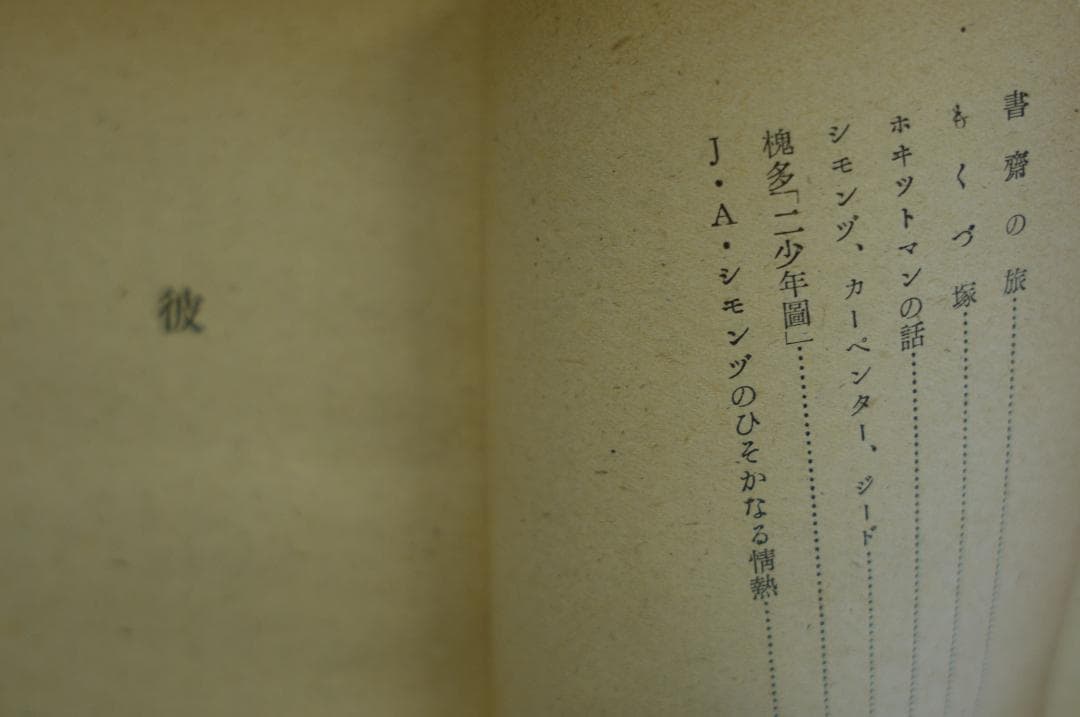 書齋の旅
もくづ塚
ホヰツトマンの話
シモンヅ、カーペンター、ジード
槐多「二少年圖」
J・A・シモンヅのひそかなる情熱
彼